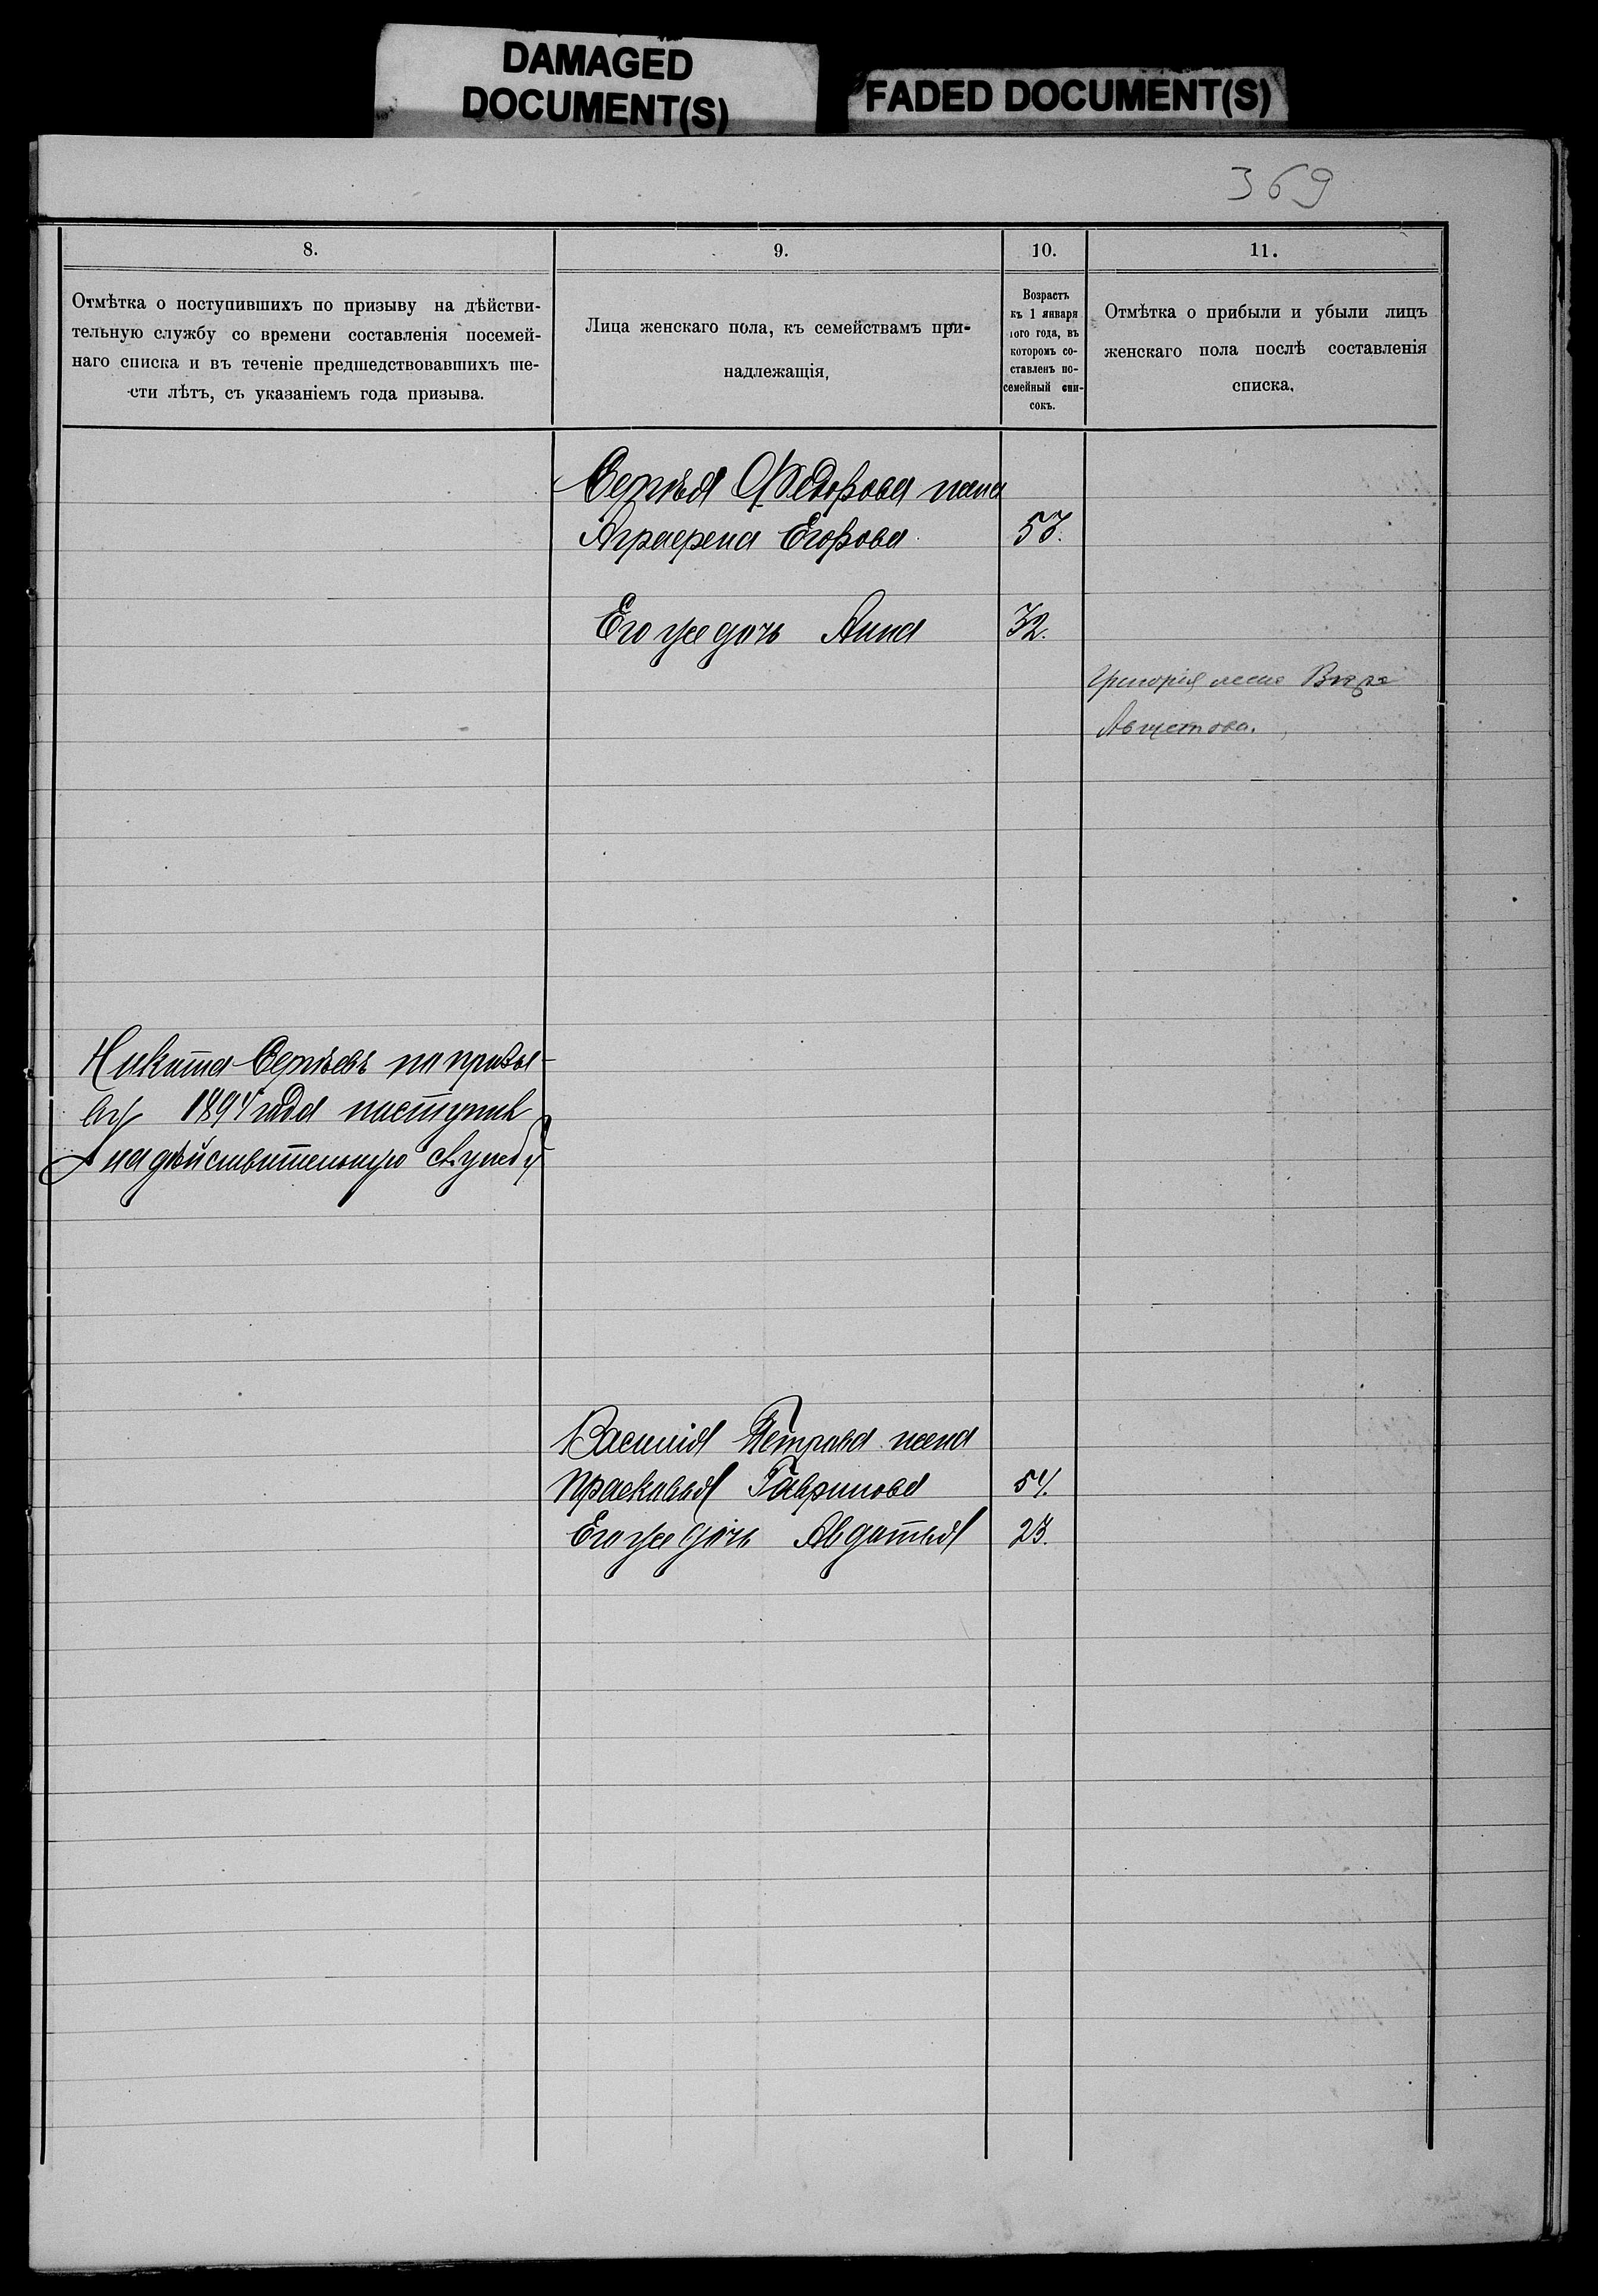 DAMAGED
DOCUMENT(S)
FADED DOCUMENT(S)
369
8.
Отмѣтка о поступившихъ по призыву на дѣйстви-
тельную службу со времени составленія посемей-
наго списка и въ теченіе предшедствовавшихъ ше-
сти лѣтъ, съ указаніемъ года призыва.
9.
Лица женскаго пола, къ семействамъ при-
надлежащія,
10.
Возрастъ
къ 1 января
того года, въ
которомъ со-
ставленъ по-
семейный спи-
сокъ.
11.
Отмѣтка о прибыли и убыли лицъ
женскаго пола послѣ составленія
списка.
Сергѣя Ѳедорова жена
Аграфена Егорова 53.
Его же дочь Анна 32.
Григорія жена Вѣра
Августова.
Никита Сергѣевъ по призы-
ву 1894 года поступилъ
на дѣйствительную службу
Василія Петрова жена
Прасковья Гаврилова 54.
Его же дочь Авдотья 23.